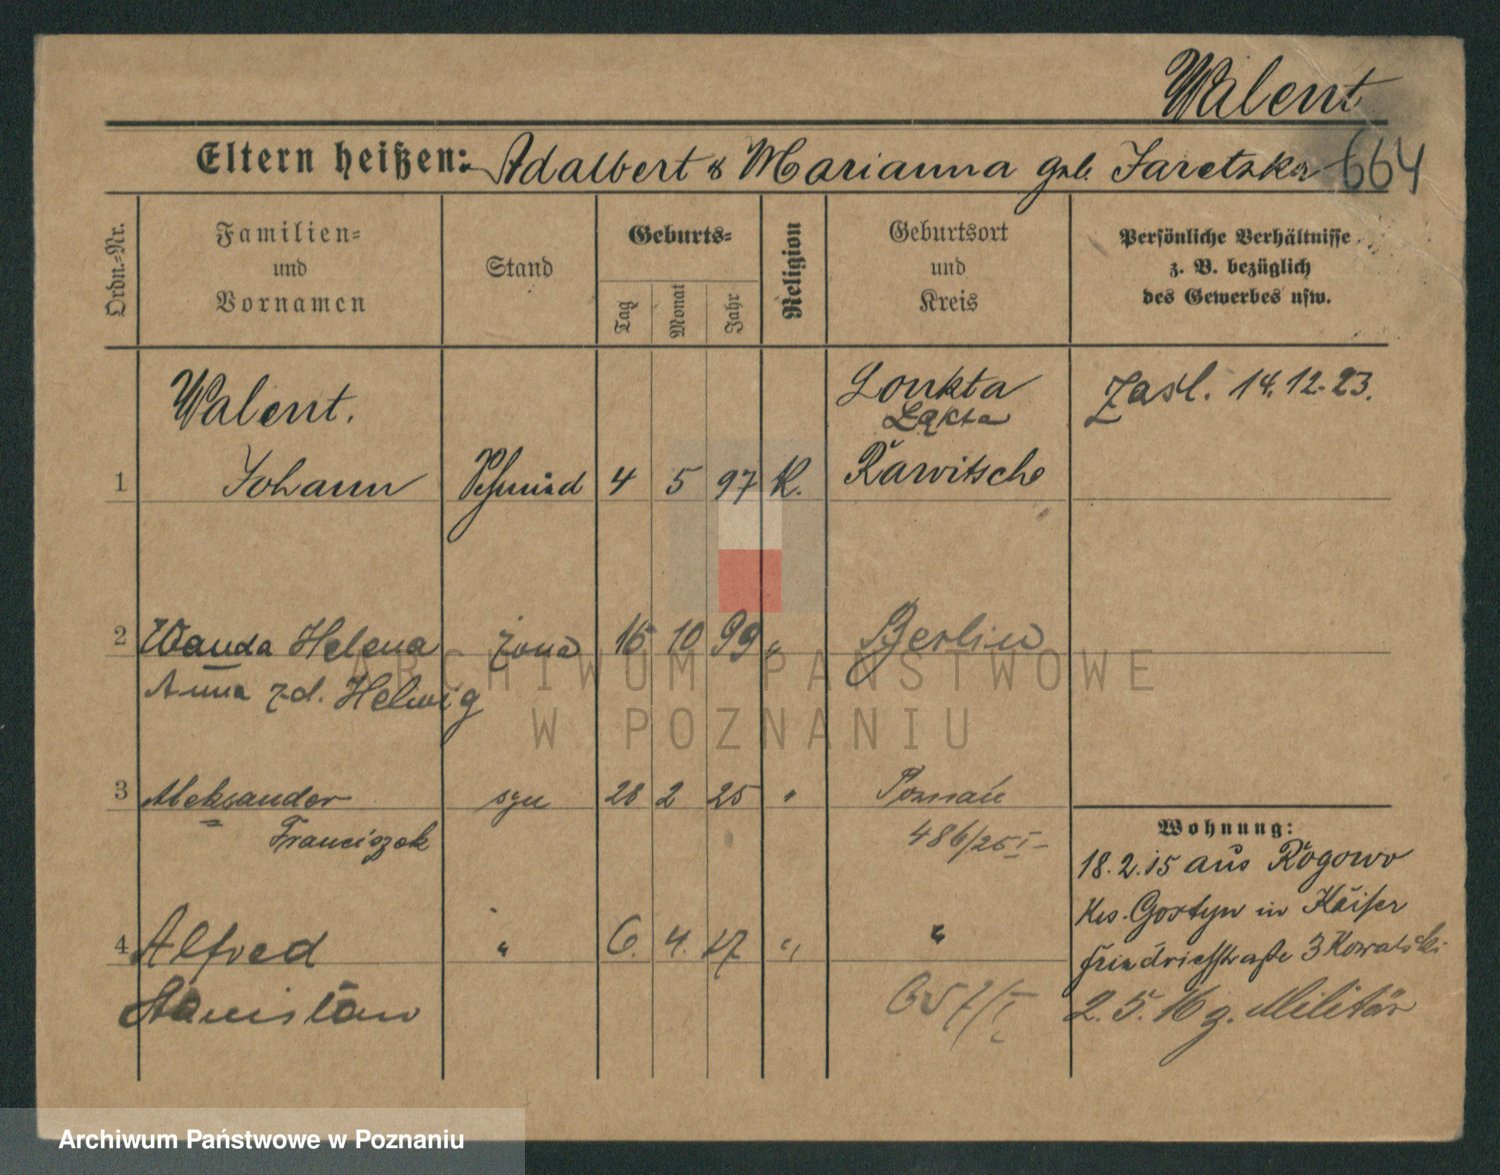 Walent
Eltern heißen: Adalbert & Marianna geb. Jaretzka 664
Ordn.-Nr.
Familien- und Vornamen
Stand
Geburts-
Tag
Monat
Jahr
Religion
Geburtsort und Kreis
Persönliche Verhältnisse z. B. bezüglich des Gewerbes usw.
Walent. Lonkta Zasl. 14.12.23.
Łąkta
1 Johann Schmied 4 5 97 K. Rawitsch
2 Wanda Helena żona 16 10 99 " Berlin
Anna z d. Helwig
3 Aleksander syn 28 2 25 " Poznań
Franciszek 486/25 I
Wohnung:
18.2.15 aus Rogowo
Krs. Gostyn in Kaiser
4 Alfred " 6. 4. 27 " "
Friedrichstraße 3 Kowalski
Stanisław 657/I
2.5.16 z. Militär
ARCHIWUM PAŃSTWOWE
W POZNANIU
Archiwum Państwowe w Poznaniu